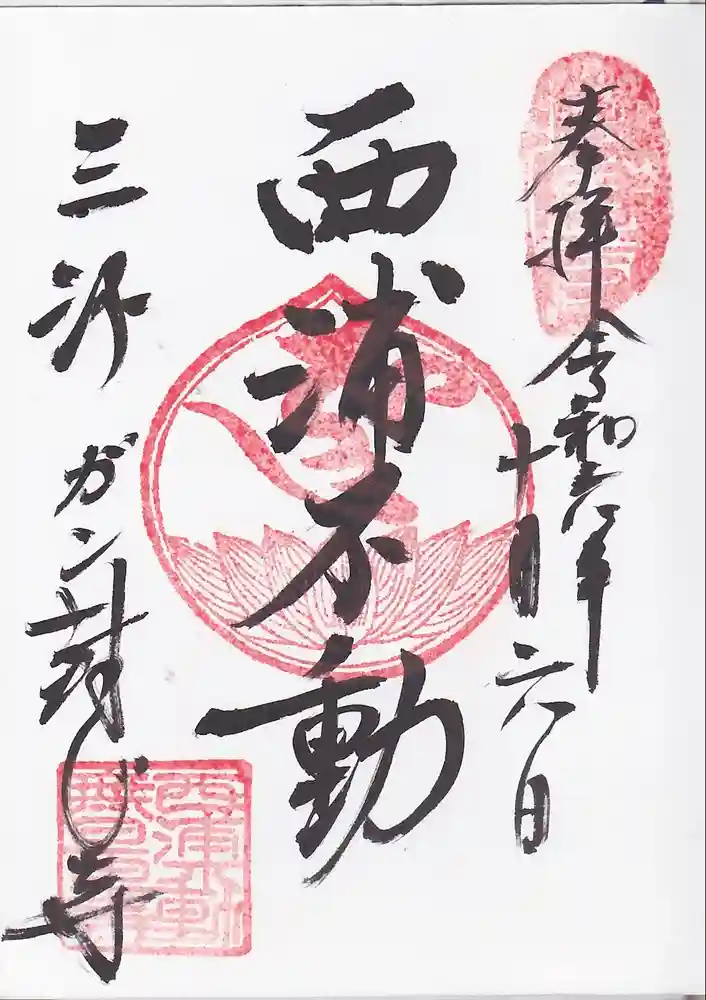 奉拝 令和六年
十月六日
西浦不動
三河 ガン封じ寺